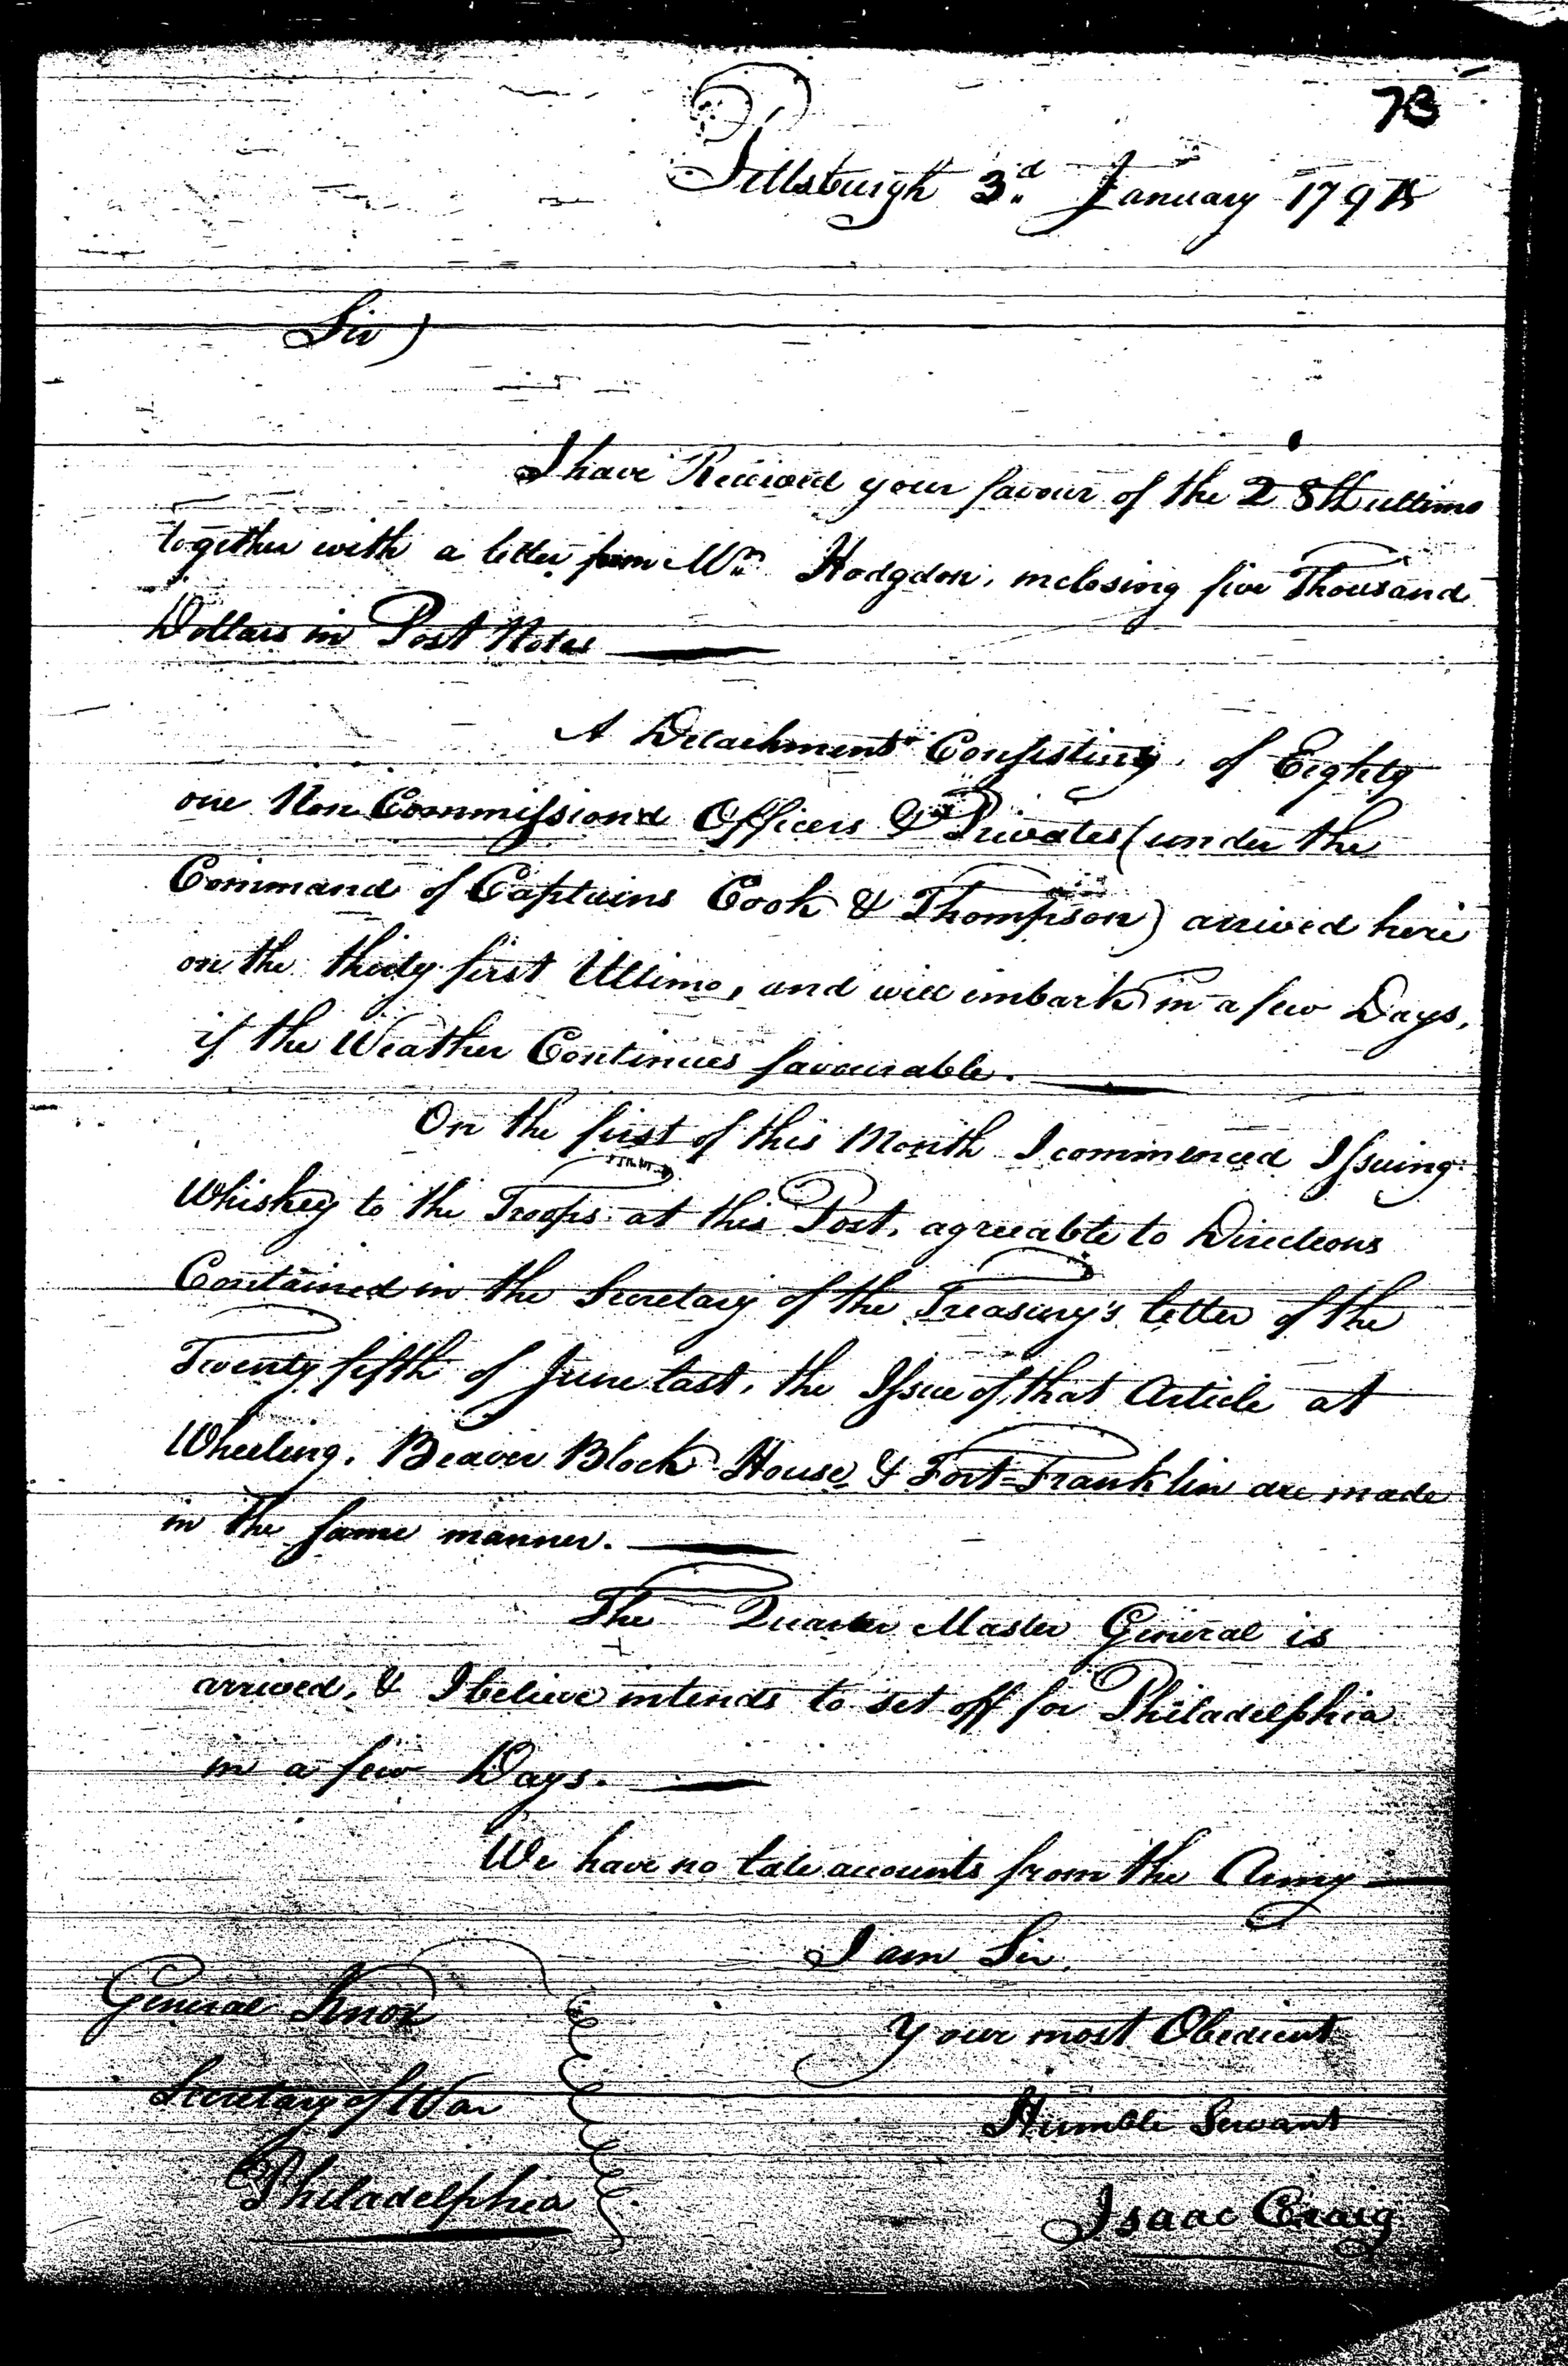 73
Pittsburgh 3d January 179
Sir)
I have Received your favour of the 28th ultimo
together with a letter from Mr. Hodgdon, inclosing five Thousand
Dollars in Post Notes
A Detachment Consisting, of Eighty
one Non Commission'd Officers & Privates (under the
Command of Captains Cook & Thompson) arrived here
on the thirty first Ultimo, and will imbark in a few Days,
if the Weather Continues favourable.
On the first of this Month I commenced Issuing
Whiskey to the Troops at this Post, agreeable to Directions
Contained in the Secretary of the Treasury's letter of the
Twenty fifth of June last, the Issue of that Article at
Wheeling, Beaver Block House, & Fort-Franklin are made
in the same manner.
The Quarter Master General is
arrived, & I believe intends to set off for Philadelphia
in a few Days.
We have no late accounts from the Army
I am Sir,
General Knox
your most Obedient
Secretary of War
Humble Servant
Philadelphia
Isaac Craig